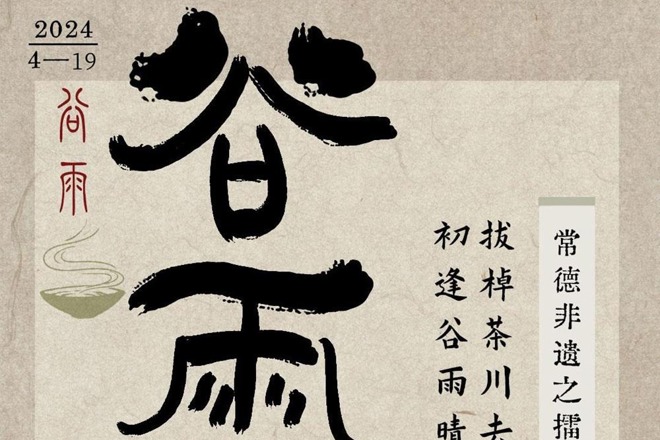 2024
4—19
谷雨
谷雨
常德非遗之擂
拔棹茶川去
初逢谷雨晴